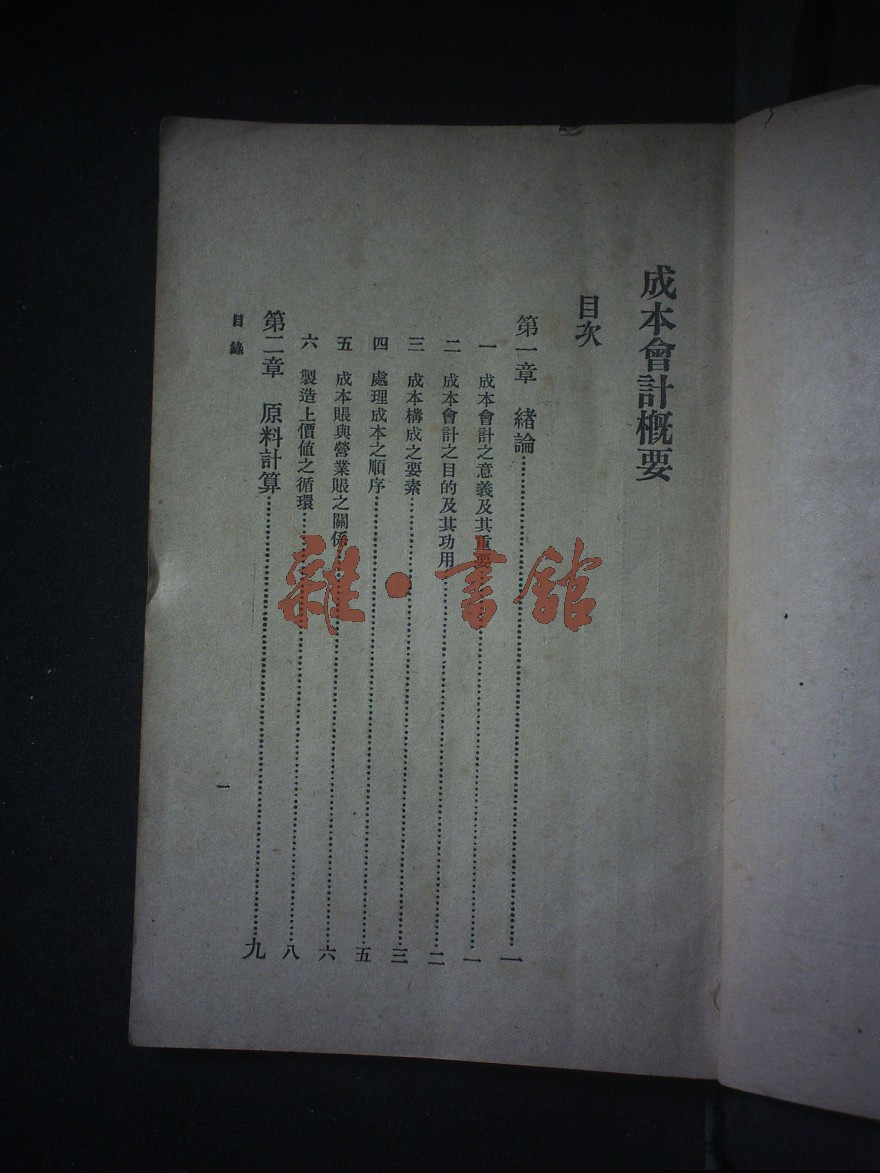 成本會計概要
目次
第一章　緒論……一
一　成本會計之意義及其重要……一
二　成本會計之目的及其功用……二
三　成本構成之要素……三
四　處理成本之順序……五
五　成本賬與營業賬之關係……六
六　製造上價值之循環……八
第二章　原料計算……九
目錄
一
雜·書館